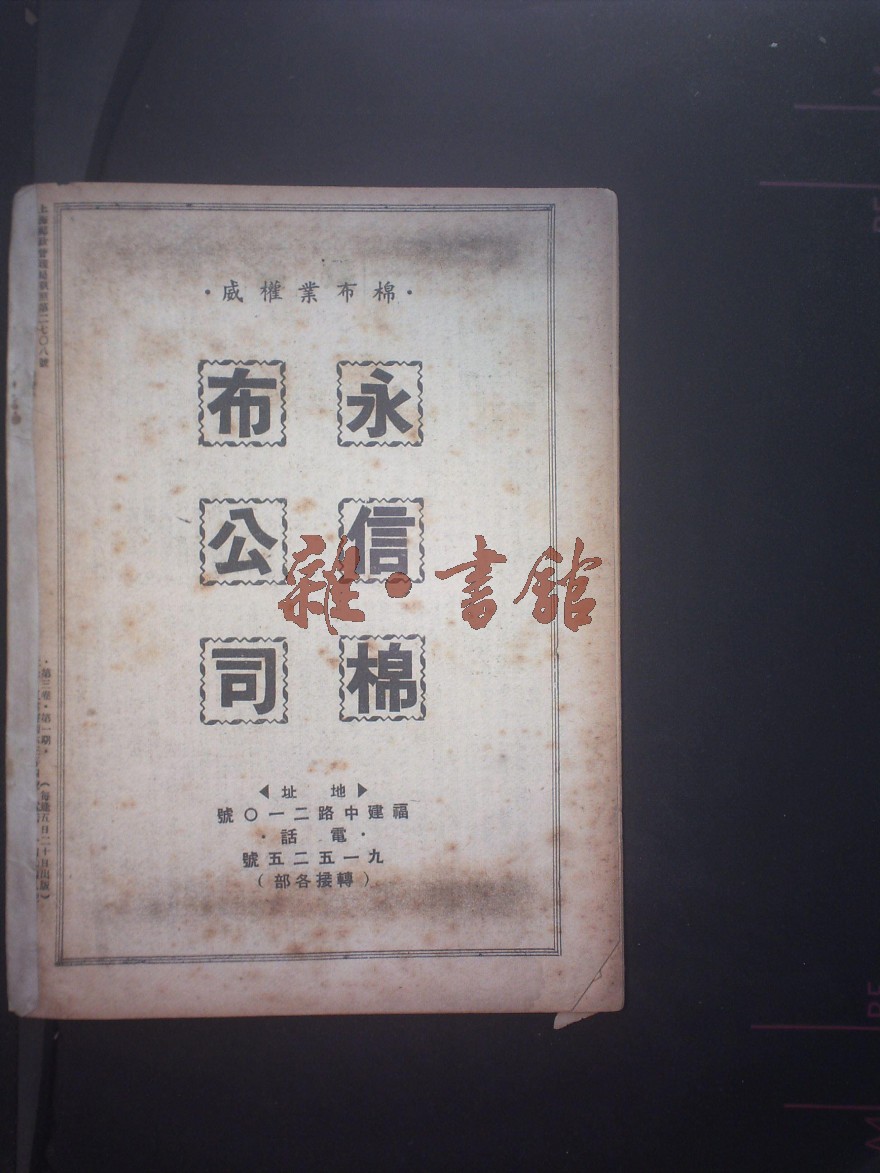 ·棉布業權威·
永信棉
布公司
▶地址◀
福建中路二一〇號
·電話·
九一五二五號
(轉接各部)
上海郵政管理局執照第二七〇八號
·第三卷·第一期·
(每逢五日二十日出版)
雜·書館